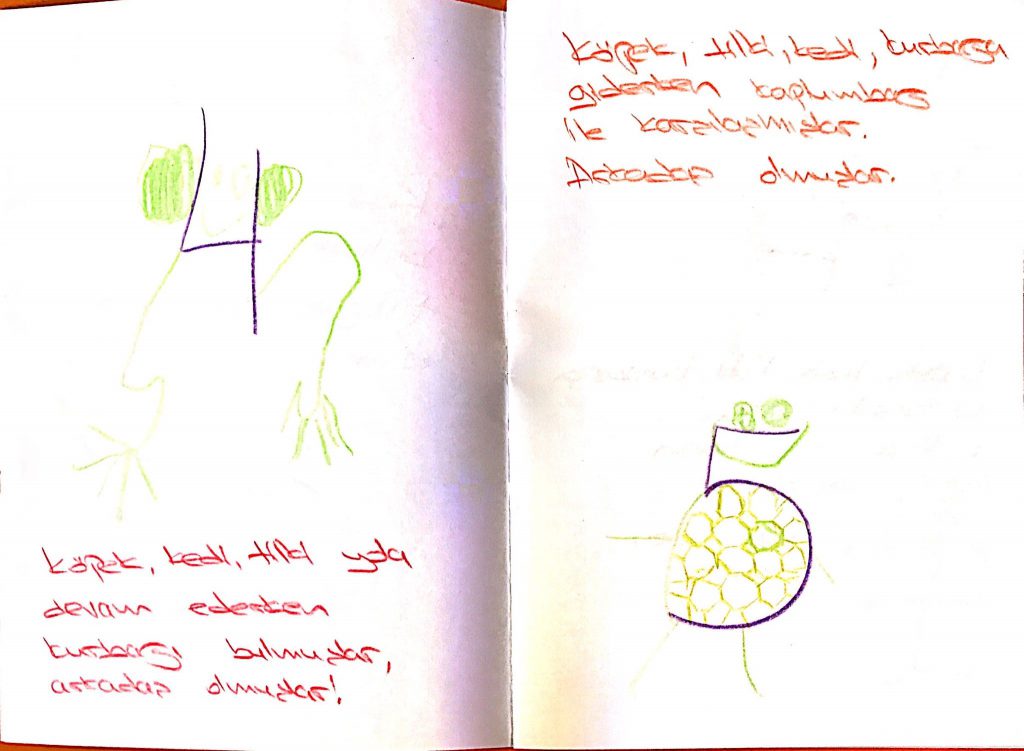 4
köpek, kedi, tilki yola
devam ederken
kurbağayı bulmuşlar,
arkadaş olmuşlar!
Köpek, tilki, kedi, kurbağa
giderken kaplumbağa
ile karşılaşmışlar.
Arkadaş olmuşlar.
5